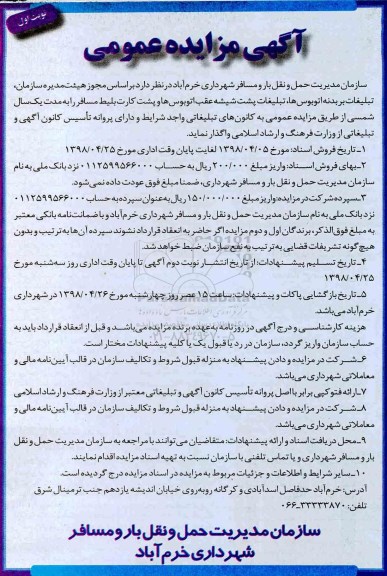 نوبت اول
آگهی مزایده عمومی
سازمان مدیریت حمل و نقل بار و مسافر شهرداری خرم آباد در نظر دارد بر اساس مجوز هیئت مدیره سازمان،
تبلیغات بر بدنه اتوبوس ها، تبلیغات پشت شیشه عقب اتوبوس ها و پشت کارت بلیط مسافر را به مدت یک سال
شمسی از طریق مزایده عمومی به کانون های تبلیغاتی واجد شرایط و دارای پروانه تأسیس کانون آگهی و
تبلیغاتی از وزارت فرهنگ و ارشاد اسلامی واگذار نماید.
۱- تاریخ فروش اسناد: مورخ ۱۳۹۸/۰۴/۰۵ لغایت پایان وقت اداری مورخ ۱۳۹۸/۰۴/۲۵
۲- بهای فروش اسناد: واریز مبلغ ۲۰۰/۰۰۰ ریال به حساب ۰۱۱۲۵۹۹۵۶۶۰۰۰ نزد بانک ملی به نام
سازمان مدیریت حمل و نقل بار و مسافر شهرداری، ضمنا مبلغ فوق عودت داده نمی شود.
۳- سپرده شرکت در مزایده: واریز مبلغ ۱۵۰/۰۰۰/۰۰۰ ریال به عنوان سپرده به حساب ۰۱۱۲۵۹۹۵۶۶۰۰۰
نزد بانک ملی به نام سازمان مدیریت حمل و نقل بار و مسافر شهرداری خرم آباد و یا ضمانت نامه بانکی معتبر
به مبلغ فوق الذکر، برندگان اول و دوم مزایده اگر حاضر به انعقاد قرارداد نشوند سپرده آن ها به ترتیب و بدون
هیچ گونه تشریفات قضایی به ترتیب به نفع سازمان ضبط خواهد شد.
۴- تاریخ تسلیم پیشنهادات: از تاریخ انتشار نوبت دوم آگهی تا پایان وقت اداری روز سه شنبه مورخ
۱۳۹۸/۰۴/۲۵
۵- تاریخ بازگشایی پاکات و پیشنهادات: ساعت ۱۵ عصر روز چهارشنبه مورخ ۱۳۹۸/۰۴/۲۶ در شهرداری
خرم آباد می باشد.
هزینه کارشناسی و درج آگهی در روزنامه به عهده برنده مزایده می باشد و قبل از انعقاد قرارداد باید به
حساب سازمان واریز گردد، سازمان در رد یا قبول یک یا کلیه پیشنهادات مختار است.
۶- شرکت در مزایده و دادن پیشنهاد به منزله قبول شروط و تکالیف سازمان در قالب آیین نامه مالی و
معاملاتی شهرداری می باشد.
۷- ارائه فتوکپی برابر با اصل پروانه تأسیس کانون آگهی و تبلیغاتی معتبر از وزارت فرهنگ و ارشاد اسلامی
۸- شرکت در مزایده و دادن پیشنهاد به منزله قبول شروط و تکالیف سازمان در قالب آیین نامه مالی و
معاملاتی شهرداری می باشد.
۹- محل دریافت اسناد و ارائه پیشنهادات: متقاضیان می توانند با مراجعه به سازمان مدیریت حمل و نقل
بار و مسافر شهرداری و یا تماس تلفنی با سازمان نسبت به تهیه اسناد مزایده اقدام نمایند.
۱۰- سایر شرایط و اطلاعات و جزئیات مربوط به مزایده در اسناد مزایده درج گردیده است.
آدرس: خرم آباد حدفاصل اسدآبادی و کرگانه روبه روی خیابان اندیشه یازدهم جنب ترمینال شرق
تلفن: ۳۳۳۳۳۸۷۰-۰۶۶
سازمان مدیریت حمل و نقل بار و مسافر
شهرداری خرم آباد